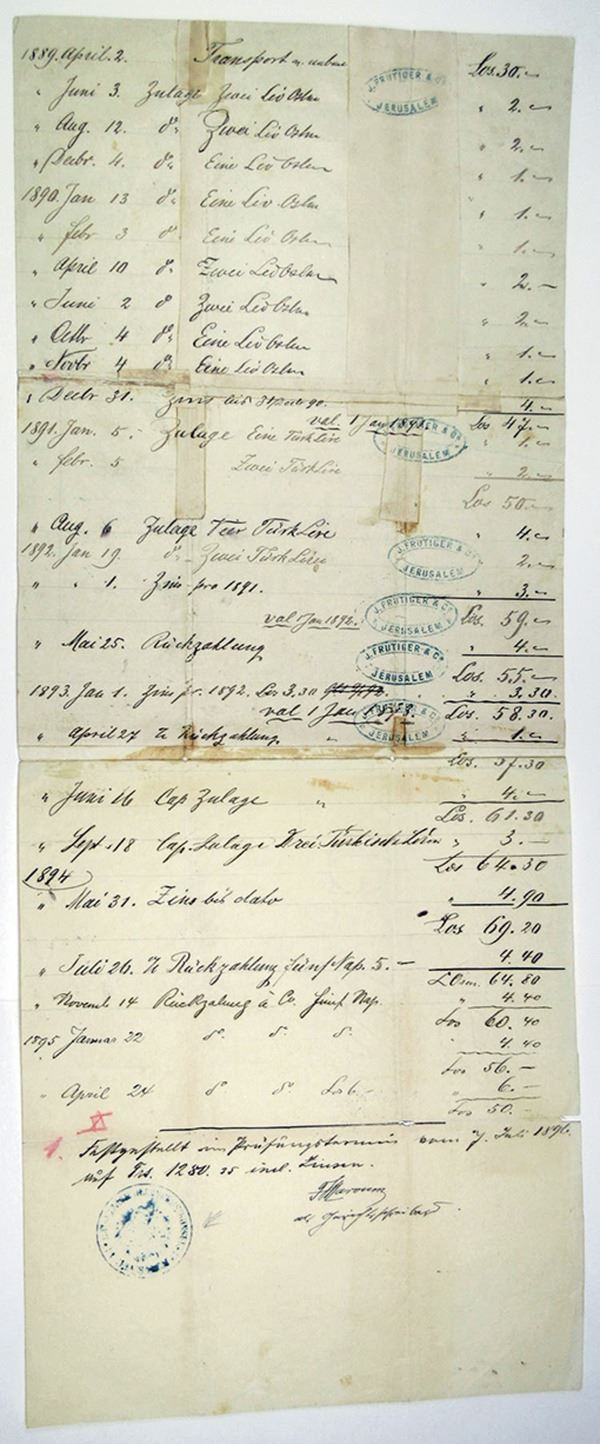 1889. April. 2. Transport Los. 30.-
" Juni 3. Zulage Zwei Liv Osm " 2.-
J. FRUTIGER & Co. JERUSALEM
" Aug. 12. do Zwei Liv Osm " 2.-
" Decbr. 4. do Eine Liv Osm " 1.-
1890. Jan 13 do Eine Liv Osm " 1.-
" febr 3 do Eine Liv Osm " 1.-
" April 10 do Zwei Liv Osm " 2.-
" Juni 2 do Zwei Liv Osm " 2.-
" Octbr 4 do Eine Liv Osm " 1.-
" Novbr 4 do Eine Liv Osm " 1.-
" Decbr 31. Zins bis 31 Decbr 90. 4.-
val. 1 Jan 1891. Los 47.-
1891. Jan. 5. Zulage Eine Türk Lire " 1.-
J. FRUTIGER & Co. JERUSALEM
" febr. 5 Zwei Türk Lire " 2.-
Los 50.-
" Aug. 6 Zulage Vier Türk Lire " 4.-
1892. Jan 19. do Zwei Türk Lire 2.-
J. FRUTIGER & Co. JERUSALEM
" " 1. Zins pro 1891. " 3.-
val 1 Jan 1892. Los. 59.-
J. FRUTIGER & Co. JERUSALEM
" Mai 25. Rückzahlung " 4.-
J. FRUTIGER & Co. JERUSALEM
Los. 55.-
1893. Jan 1. Zins pr. 1892. Liv 3.30 " 3.30.
val 1 Jan 1893. Los. 58.30.
J. FRUTIGER & Co. JERUSALEM
" April 27 Rückzahlung " " 1.-
Los. 57.30
" Juni 16 Cap Zulage " " 4.-
Los. 61.30
" Sept. 18 Cap. Zulage Drei Türkische " 3.-
Los 64.30
1894
" Mai 31. Zins bis dato " 4.90
Los 69.20
" Juli 26. Rückzahlung fünf Nap. 5.- 4.40
LOsm. 64.80
" Novemb 14 Rückzalung à Co. fünf Nap. " 4.40
Los 60.40
1895 Januar 22 do. do. do. " 4.40
Los 56.-
" April 24 do do. Los 6.- 6.-
Los 50.-
1. Festgestellt im Prüfungstermin vom 7. Juli 1896.
auf Frs. 1280.35 incl. Zinsen.
als Gerichtsschreiber